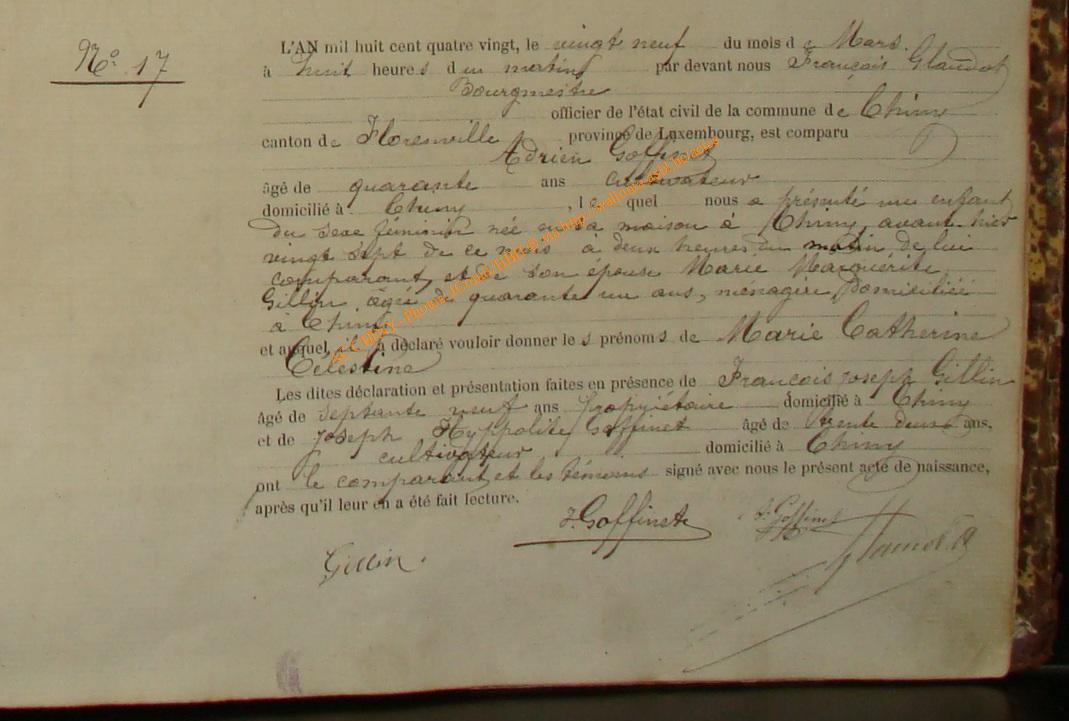 No. 17
L'AN mil huit cent quatre vingt, le vingt neuf du mois de Mars
à huit heures du matin par devant nous François Glaudot
Bourgmestre
officier de l'état civil de la commune de Chiny
canton de Florenville province de Luxembourg, est comparu
Adrien Goffinet
âgé de quarante ans cultivateur
domicilié à Chiny, lequel nous a présenté un enfant
du sexe féminin née en sa maison à Chiny, avant-hier
vingt sept de ce mois à deux heures du matin de lui
comparant, et de son épouse Marie Marguérite
Gillin, âgée de quarante un ans, ménagère, domiciliée
à Chiny
et auquel il a déclaré vouloir donner les prénoms de Marie Catherine
Célestine
Les dites déclaration et présentation faites en présence de François Joseph Gillin
âgé de septante neuf ans propriétaire domicilié à Chiny
et de Joseph Hyppolite Goffinet âgé de trente deux ans,
cultivateur domicilié à Chiny
ont le comparant et les témoins signé avec nous le présent acte de naissance,
après qu'il leur en a été fait lecture.
J. Goffinet A. Goffinet
Gillin. Glaudot